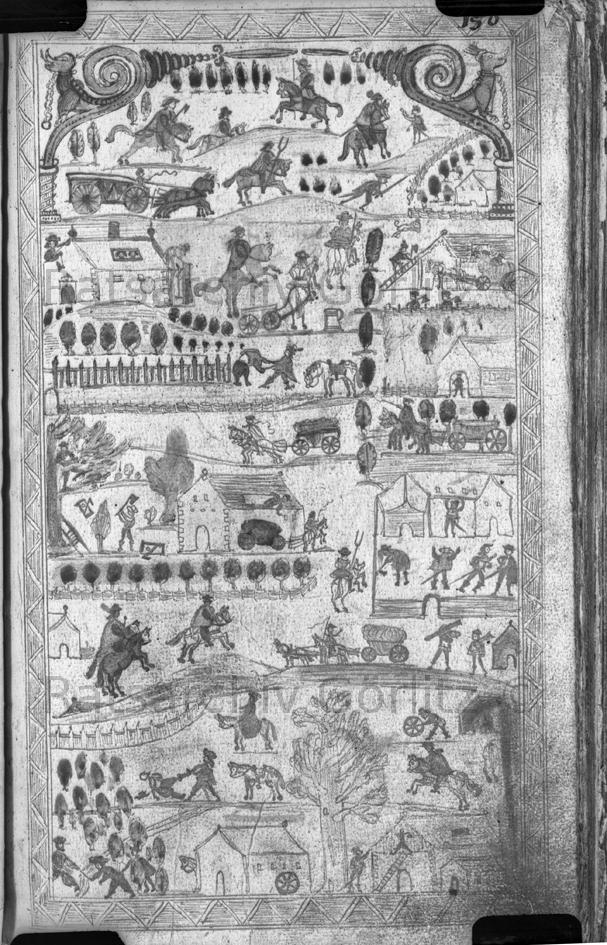 150
Ratsarchiv Görlitz
Ratsarchiv Görlitz